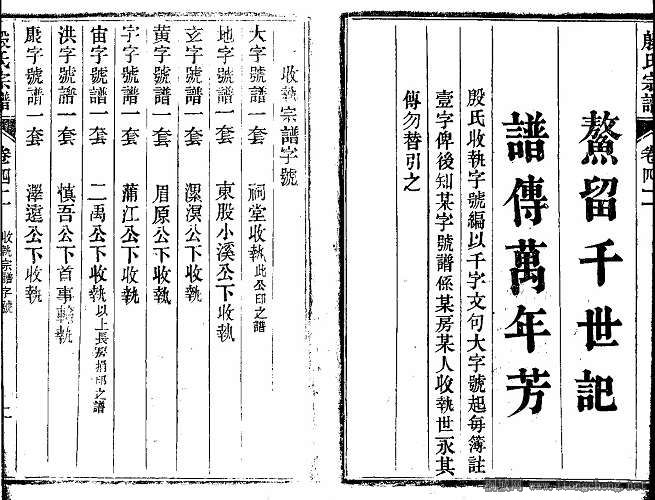 殷氏宗譜 卷四二
鰲留千世記
譜傳萬年芳
殷氏收執字號編以千字文句大字號起每簿註
壹字俾後知某字號譜係某房某人收執世永其
傳勿替引之
收執宗譜字號
大字號譜一套 祠堂收執此公印之譜
地字號譜一套 東股小溪公下收執
玄字號譜一套 潔溟公下收執
黃字號譜一套 眉原公下收執
宇字號譜一套 蒲江公下收執
宙字號譜一套 二禹公下收執以上長房捐印之譜
洪字號譜一套 慎吾公下首事輪執
辰字號譜一套 澤遠公下收執
殷氏宗譜 卷四二 收執宗譜字號